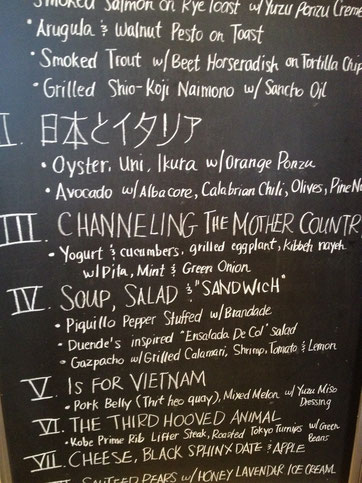 Smoked Salmon on Rye Toast w/Yuzu Ponzu Creme
• Arugula & Walnut Pesto on Toast
• Smoked Trout w/ Beet Horseradish on Tortilla Chip
• Grilled Shio-Koji Naimono w/ Sancho Oil
I. 日本とイタリア
• Oyster, Uni, Ikura w/Orange Ponzu
• Avocado w/Albacore, Calabrian Chili, Olives, Pine N
III. CHANNELING THE MOTHER COUNTR
• Yogurt & cucumbers, grilled eggplant, kibbeh nayeh
w/Pita, Mint & Green Onion
IV. SOUP, SALAD & "SANDWICH"
• Piquillo Pepper Stuffed w/Brandade
• Duende's inspired "Ensalada De Col" salad
• Gazpacho w/Grilled Calamari, Shrimp, Tomato & Lemon
V. IS FOR VIETNAM
• Pork Belly (Thit heo quay), Mixed Melon w/ Yuzu Miso
Dressing
VI. THE THIRD HOOVED ANIMAL
• Kobe Prime Rib Lifter Steak, Roasted Tokyo Turnips w/Green
Beans
VII. CHEESE, BLACK SPHINX DATE & APPLE
SAUTEED PEARS w/HONEY LAVENDAR ICE CREAM